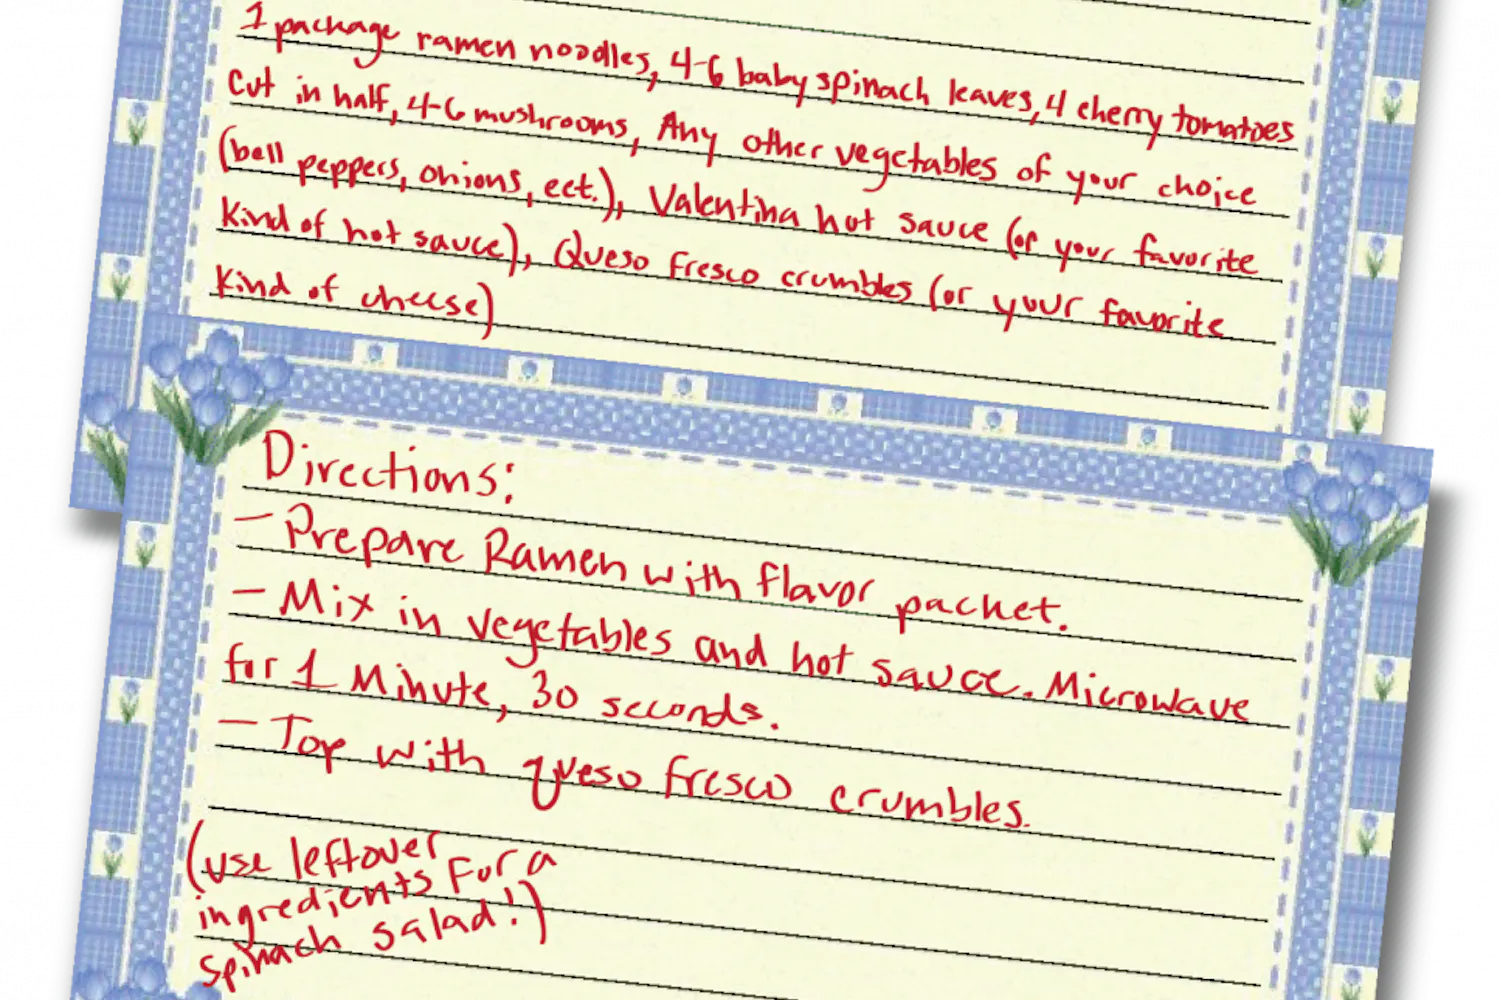 1 package ramen noodles, 4-6 baby spinach leaves, 4 cherry tomatoes
cut in half, 4-6 mushrooms, Any other vegetables of your choice
(bell peppers, onions, ect.), Valentina hot sauce (or your favorite
kind of hot sauce), Queso fresco crumbles (or your favorite
kind of cheese)
Directions:
- Prepare Ramen with flavor packet.
- Mix in vegetables and hot sauce. Microwave
for 1 Minute, 30 seconds.
- Top with queso fresco crumbles.
(use leftover
ingredients for a
spinach salad!)